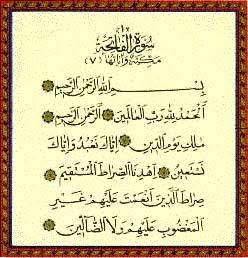 ١
سُورَةُ الفَاتِحَة
مَكِّيَّة وَآيَاتُهَا (٧)
بِسْمِ اللَّهِ الرَّحْمَٰنِ الرَّحِيمِ
الْحَمْدُ لِلَّهِ رَبِّ الْعَالَمِينَ الرَّحْمَٰنِ الرَّحِيمِ
مَٰلِكِ يَوْمِ الدِّينِ إِيَّاكَ نَعْبُدُ وَإِيَّاكَ
نَسْتَعِينُ اهْدِنَا الصِّرَاطَ الْمُسْتَقِيمَ
صِرَاطَ الَّذِينَ أَنْعَمْتَ عَلَيْهِمْ غَيْرِ
الْمَغْضُوبِ عَلَيْهِمْ وَلَا الضَّالِّينَ